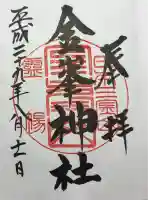 奉拝
金峯神社
平成二十九年八月十一日